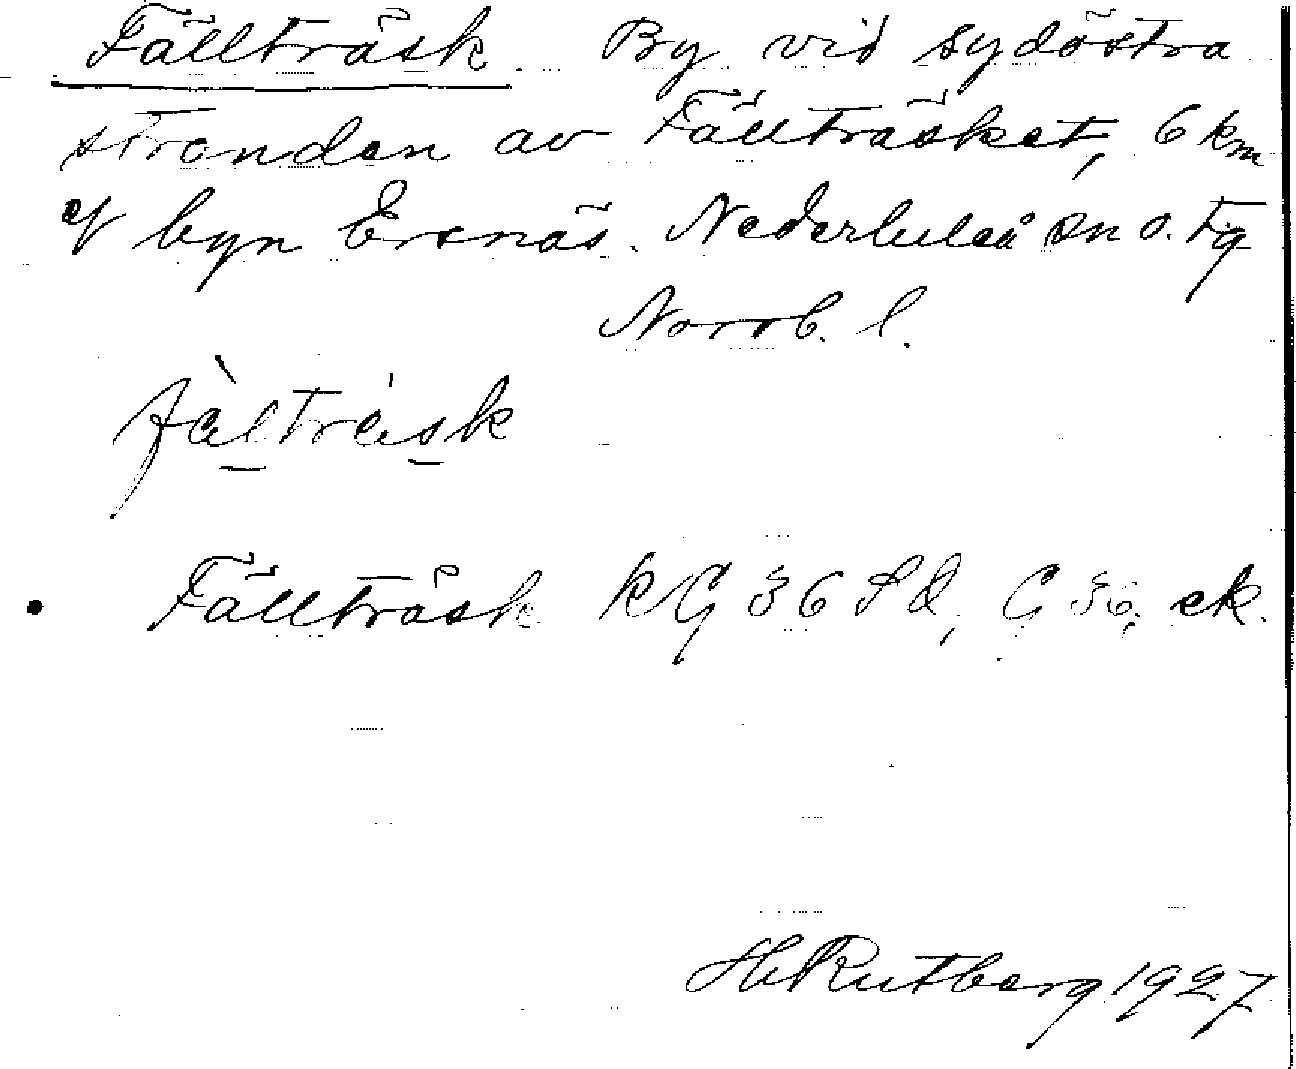 Fällträsk. By vid sydöstra
stranden av Fällträsket, 6 km
byn Ersnäs. Nederluleå sn o. tg
Norrb. l.
fàlträsk
Fällträsk KG 36 Sd, G 36, ek.
HRutberg 1927